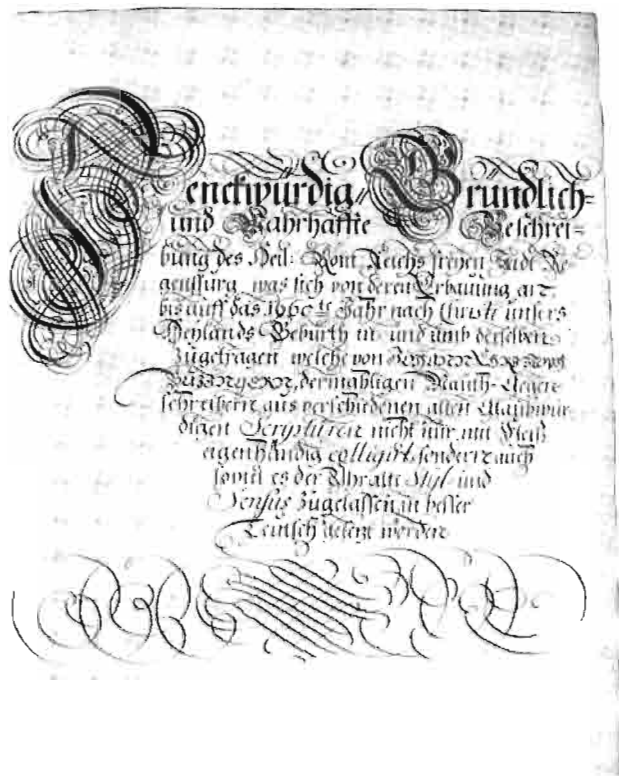 Denckwürdig Gründlich-
und Wahrhaffte Beschrei-
bung des Heil: Röm: Reichs freyen Stadt Re-
genspurg, was sich von deren Erbauung an
bis auff das 1660te Jahr nach Christi unsers
Heylands Geburth in und umb derselben
zugetragen welche von
dermahligen Mauth-Gegen-
schreibern aus verschiedenen alten Glaubwür-
digen Scripturen nicht nur mit Fleiß
eigenhändig colligirt sondern auch
soviel es der Uhralte Styl und
Sensus zugelassen in besser
Teutsch gesezt worden